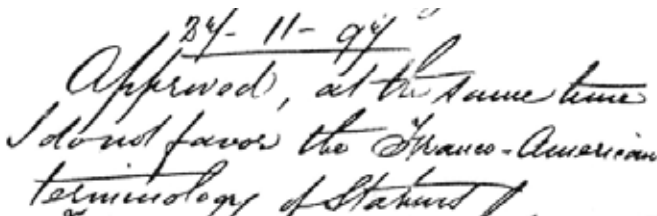 24-11-94
Approved, at the same time
I do not favor the Franco-American
terminology of